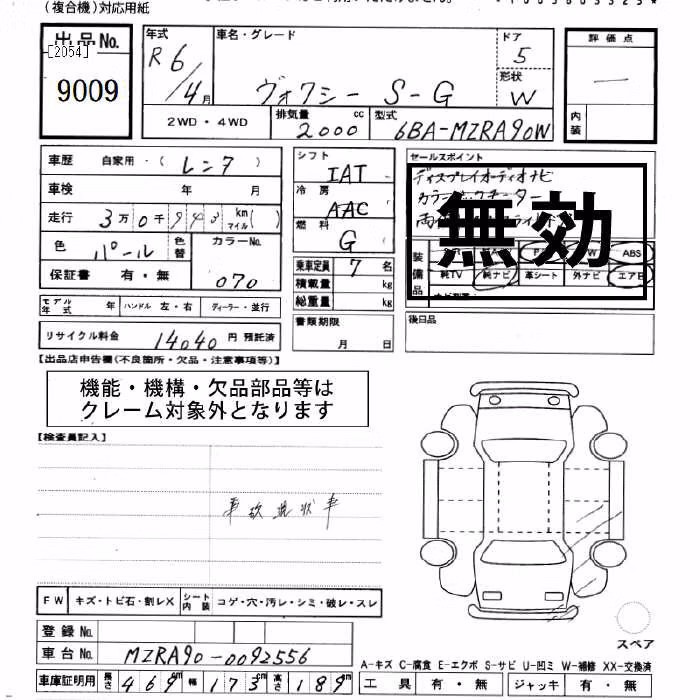 (複合機)対応用紙
出品No.
[2054]
9009
年式
R6/4月
車名・グレード
ヴォクシー S-G
ドア
5
形状
W
評価点
—
内装
2WD・4WD
排気量
2000 cc
型式
6BA-MZRA90W
車歴 自家用・(レンタ)
車検 年 月
走行 3万0千 km マイル( )
色 パール 色替 カラーNo.
070
保証書 有・無
シフト
IAT
冷房
AAC
燃料
G
乗車定員 7 名
積載量 kg
総重量 kg
セールスポイント
ディスプレイオーディオナビ
無効
装備品
ABS
純TV 純ナビ 革シート 外ナビ エアB
モデル年式 年 ハンドル 左・右 ディーラー・並行
リサイクル料金 14040 円 預託済
書類期限
月 日
後日品
【出品店申告欄(不良箇所・欠品・注意事項等)】
機能・機構・欠品部品等は
クレーム対象外となります
【検査員記入】
事故現状車
FW キズ・トビ石・割レX シート内装 コゲ・穴・汚レ・シミ・破レ・スレ
登録No.
車台No. MZRA90-0092556
車庫証明用 長さ 469 cm 幅 173 cm 高さ 189 cm
スペア
A-キズ C-腐食 E-エクボ S-サビ U-凹ミ W-補修 XX-交換済
工具 有・無 ジャッキ 有・無